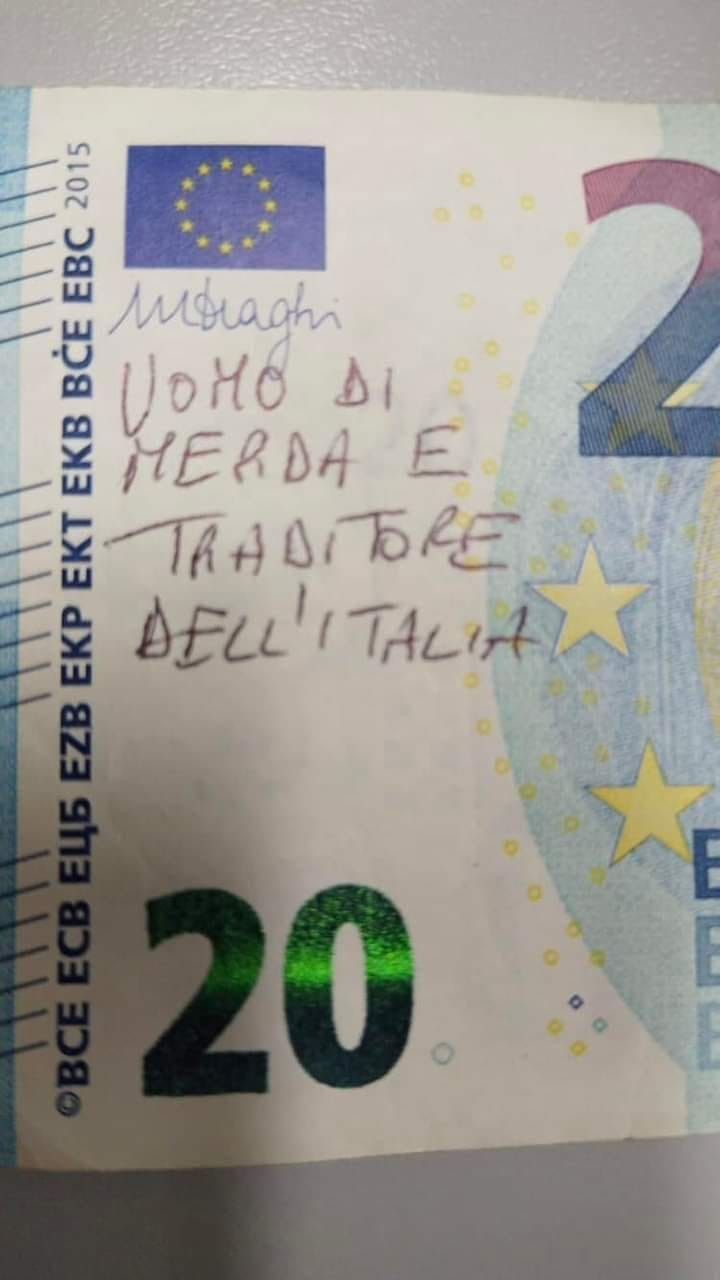 ©BCE ECB ЕЦБ EZB EKP EKT EKB BĊE EBC 2015
MDraghi
UOMO DI
MERDA E
TRADITORE
DELL'ITALIA
20
2
E
E
E